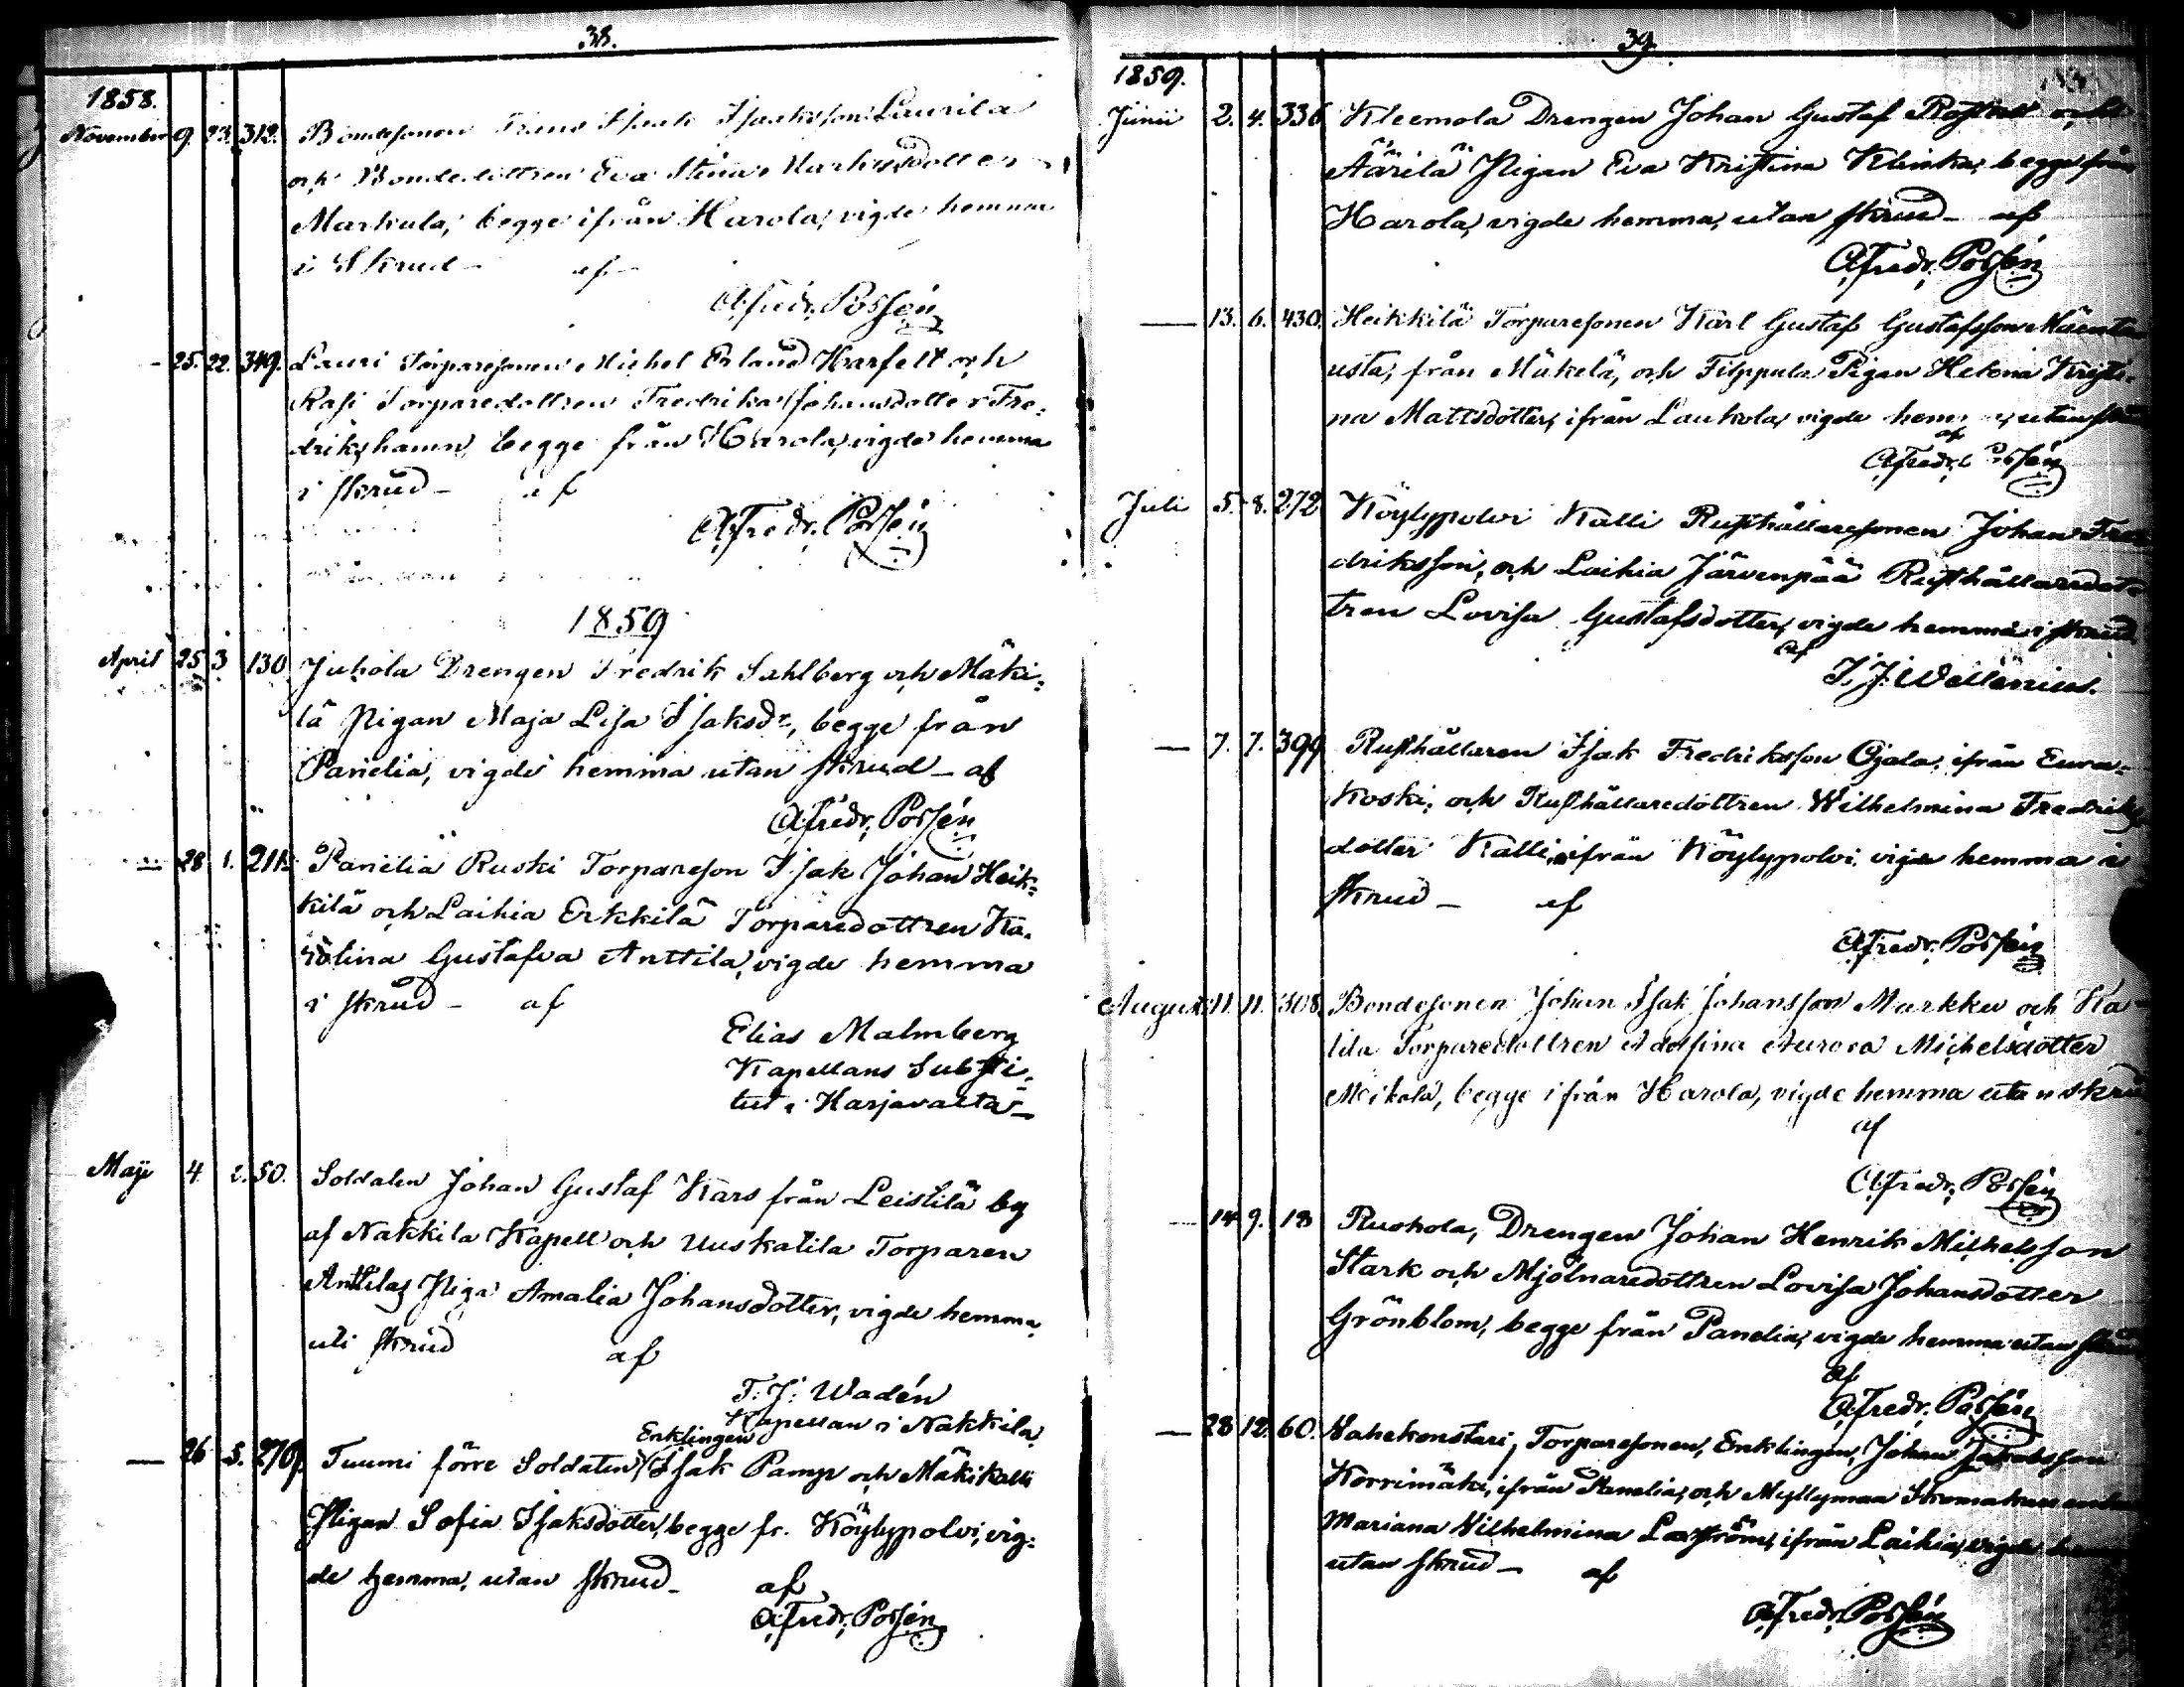 38.
1858.
November 9. 23. 312. Bondesonen Frans Isaak Isaaksson Laurila
och Bondedottren Eva Stina Markusdotter
Markula, begge ifrån Harola, vigde hemma
i Skrud – af –
A. Fredr. Possén
– 25. 22. 349. Lauri Torparesonen Michel Erland Harfelt och
Rasi Torparedottren Fredrika Johansdotter Fre=
drikshamn, begge från Harola, vigde hemma
i skrud – af
A. Fredr. Possén
1859
April 25 3 130 Juhola Drengen Fredrik Sahlberg och Mäki=
lä Pigan Maja Lisa Isaksdr, begge från
Panelia, vigde hemma utan skrud – af
A. Fredr. Possén
– 28 1. 211. Panelia Ruski Torpareson Isak Johan Heik=
kilä och Laihia Erkkilä Torparedottren Ka=
rolina Gustafva Anttila, vigde hemma
i skrud – af
Elias Malmberg
Kapellans Substi=
tut i Harjavalta –
Maji 4 2. 50. Soldaten Johan Gustaf Kars från Leistilä by
af Nakkila Kapell och Uuskatila Torparen
Anttilas Piga Amalia Johansdotter, vigde hemma
uti skrud af
T. J. Wadén
Kapellan i Nakkila.
Enklingen
– 26 5. 279. Tuumi förre Soldaten Isak Pamp och Mäkikalli
Pigan Sofia Isaksdotter, begge fr. Köylypolvi, vig=
de hemma, utan skrud – af
A. Fredr. Possén
39
1859.
Junii 2. 4. 336 Kleemola Drengen Johan Gustaf och
Äärilä Pigan Eva Kristina Klinka, begge från
Harola, vigde hemma, utan skrud – af
A. Fredr. Possén
– 13. 6. 430. Heikkilä Torparesonen Karl Gustaf Gustafsson
usta, från Mäkelä, och Filppula Pigan Helena Kristi=
na Mattsdotter, ifrån Laukola, vigde hemma, utan skrud
af
A. Fredr. Possén
Juli 5. 8. 272 Köylypolvi Kalli Rusthållaresonen Johan Fre
driksson, och Laihia Järvenpää Rusthållaredot=
tren Lovisa Gustafsdotter, vigde hemma i skrud
af
I. J. Wellenius.
– 7. 7. 399 Rusthållaren Isak Fredriksson Ojala, ifrån Eura=
koski, och Rusthållaredottren Wilhelmina Fredriks
dotter Kalli, ifrån Köylypolvi, vigde hemma i
skrud – af
A. Fredr. Possén
August. 11. 11. 308. Bondesonen Johan Isak Johansson Markku och Ka
tila Torparedottren Adolfina Aurora Michelsdotter
Mikola, begge ifrån Harola, vigde hemma utan skrud
af
A. Fredr. Possén
– 14 9. 18 Ruskola, Drengen Johan Henrik Michelsson
Stark och Mjölnaredottren Lovisa Johansdotter
Grönblom, begge från Panelia, vigde hemma utan skrud
af
A. Fredr. Possén
– 28 12. 60. Vahekonstari, Torparesonen, Enklingen, Johan Jakobsson
Korrimäki, ifrån Panelia, och Myllymaa Skomakare enkan
Mariana Vilhelmina ifrån Laihia, vigde hemma
utan skrud – af
A. Fredr. Possén